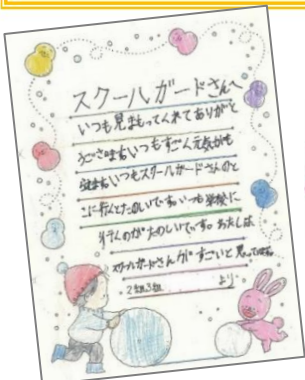 スクールガードさんへ
いつも見まもってくれてありがと
うございますいつもすごく元気がも
らえますいつもスクールガードさんのと
こに行くとたのしいですいつも学校に
行くのがたのしいです。わたしは
スクールガードさんがすごいと思っています。
2年3組 より